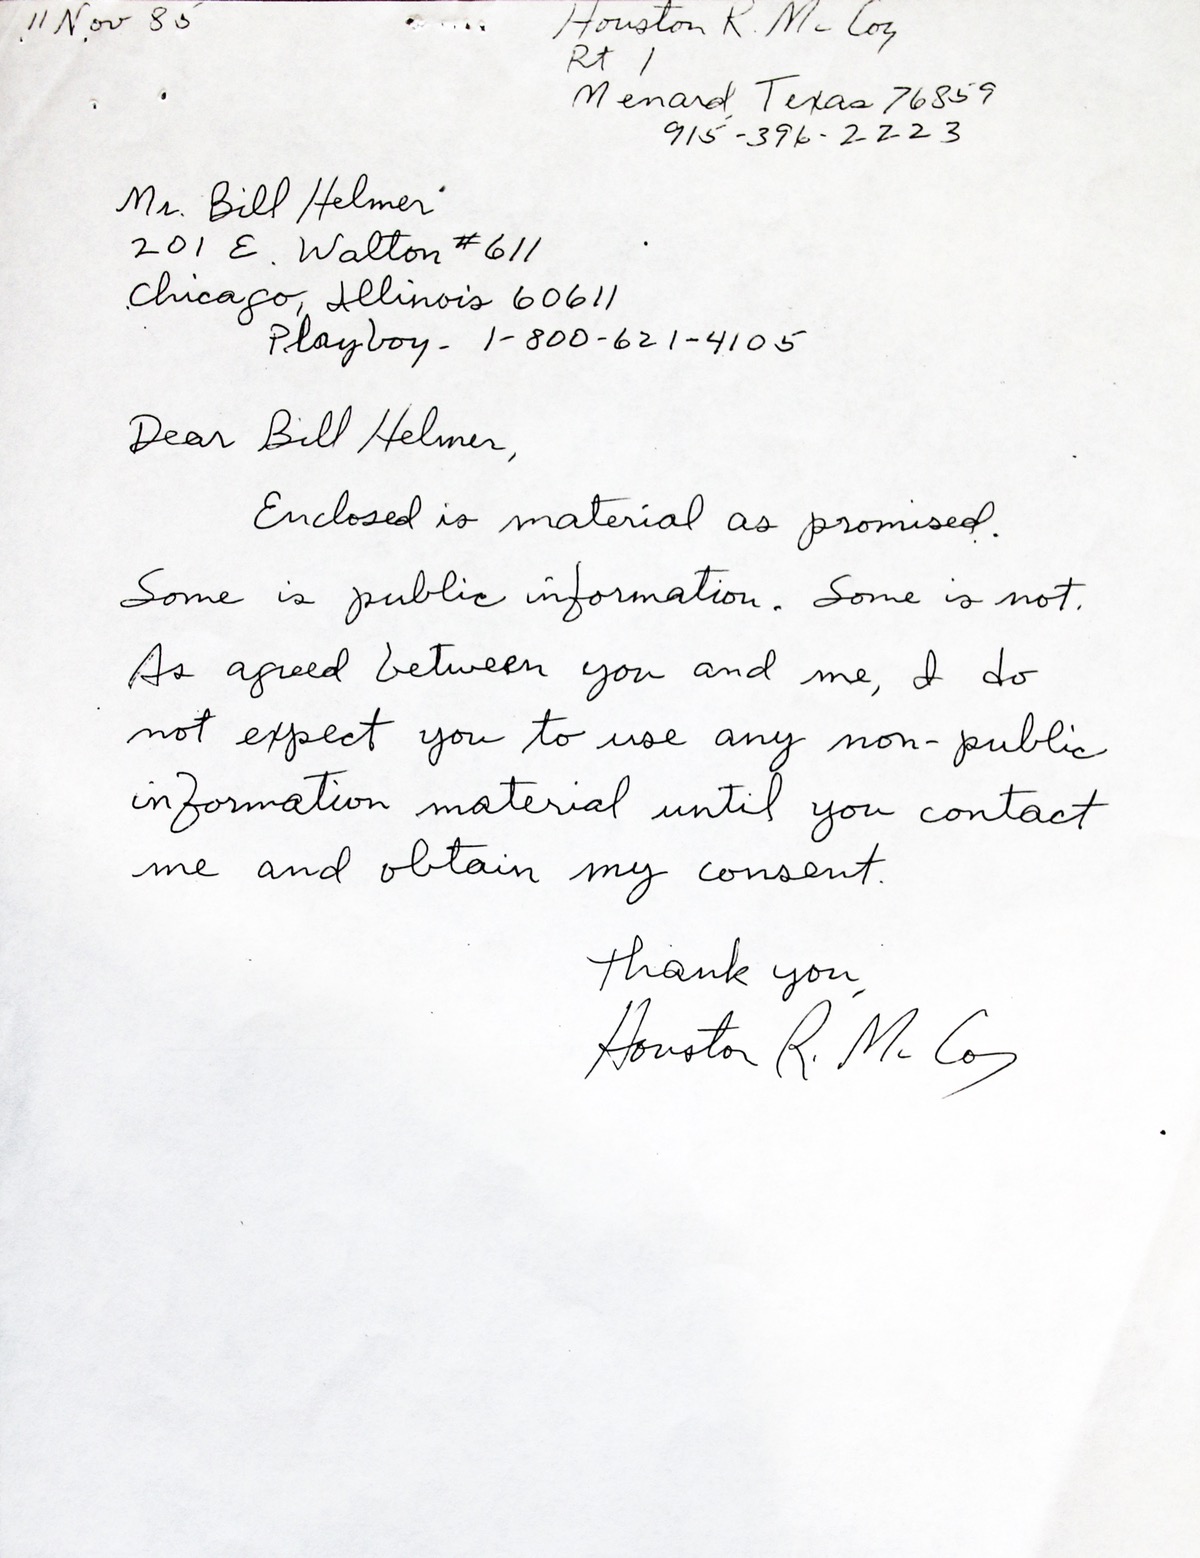 11 Nov 85
Houston R. McCoy
Rt 1
Menard, Texas 76859
915-396-2223
Mr. Bill Helmer
201 E. Walton #611
Chicago, Illinois 60611
Playboy - 1-800-621-4105
Dear Bill Helmer,
Enclosed is material as promised.
Some is public information. Some is not.
As agreed between you and me, I do
not expect you to use any non-public
information material until you contact
me and obtain my consent.
Thank you,
Houston R. McCoy